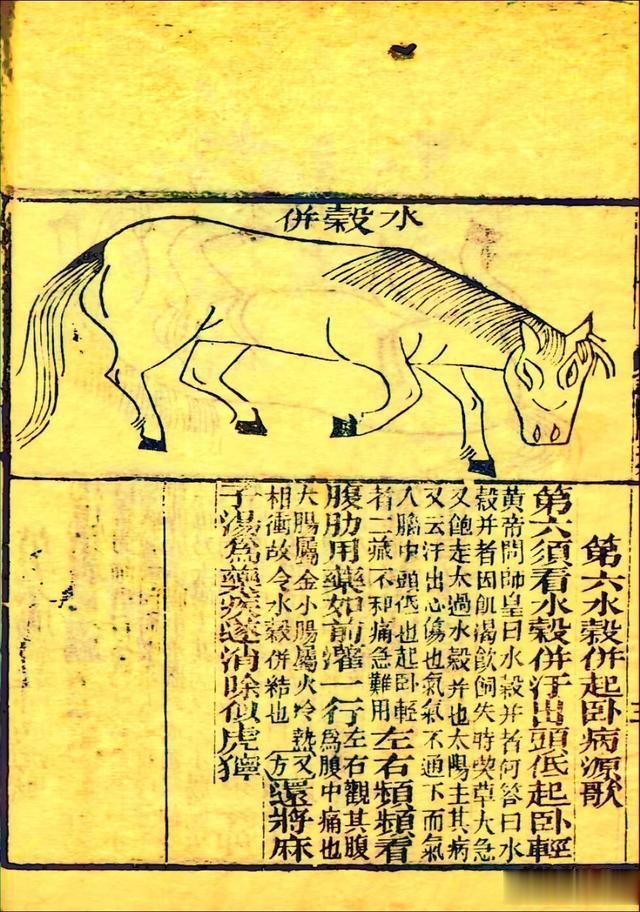 水穀併
第六水穀併起卧病源歌
第六須看水穀併汗出頭低起卧輕
黃帝問師皇曰水穀并者何答曰水
穀并者因飢渴飲飼失時喫草大急
又飽走太過水穀并也太陽主其病
又云汗出心傷也氣氣不通下而氣
入腦中頭低也起卧輕
者二藏不和痛急難用
左右頻頻看
腹肋用藥如前灌一行
左右觀其腹
爲腹中痛也
大腸屬金小腸屬火冷熱又
相衝故令水穀併結也
方
還將麻
子湯爲藥疾遂消除似虎獰